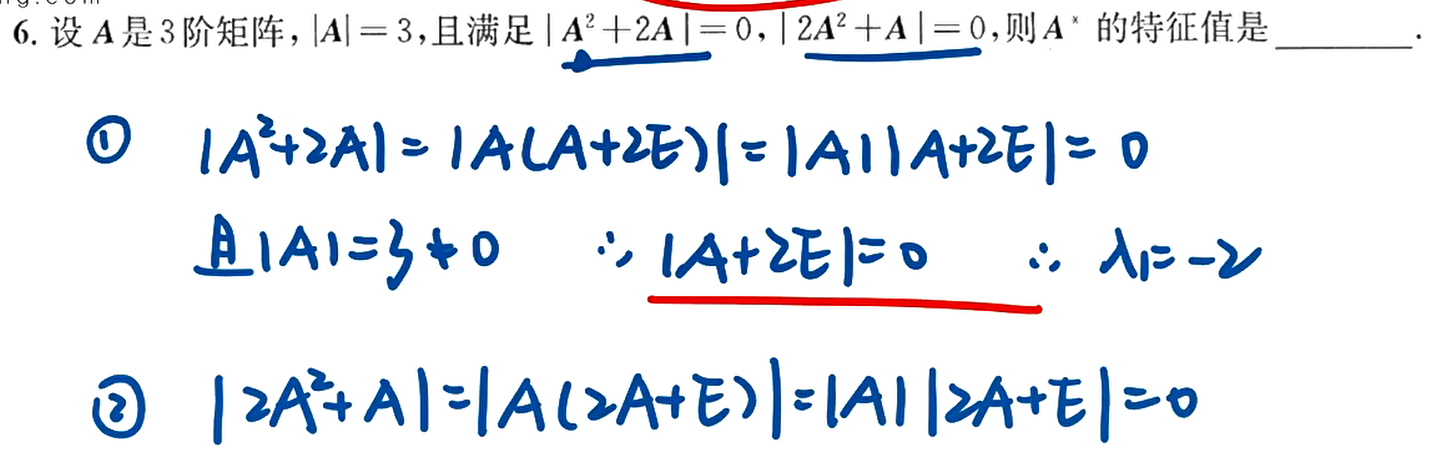 ng.com
6. 设 A 是 3 阶矩阵, |A| = 3, 且满足 | A² + 2A | = 0, | 2A² + A | = 0, 则 A* 的特征值是________.
① |A²+2A| = |A(A+2E)| = |A||A+2E| = 0
且|A|=3≠0 ∴ |A+2E|=0 ∴ λ₁=-2
② |2A²+A|=|A(2A+E)|=|A||2A+E|=0